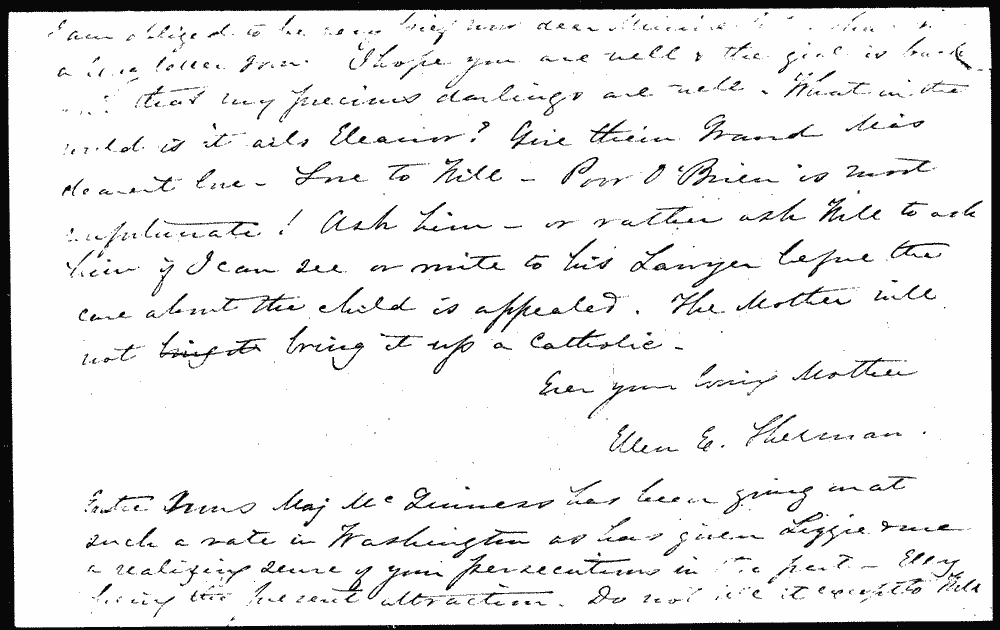 I am obliged to be very brief now dear Minnie
a long letter soon. I hope you are well & the girl is back
that my precious darlings are well. What in the
world is it ails Eleanor? Give them Grand Ma's
dearest love - Love to Will - Poor O'Brien is most
unfortunate! Ask him - or rather ask Will to ask
him if I can see or write to his Lawyer before the
case about the child is appealed. The Mother will
not bring it bring it up a Catholic -
Ever your loving Mother
Ellen E. Sherman.
Entre nous Maj McGinness has been going on at
such a rate in Washington as has given Lizzie & me
a realizing sense of your persecutions in the past - Elly
being the present attraction. Do not tell it except to Will